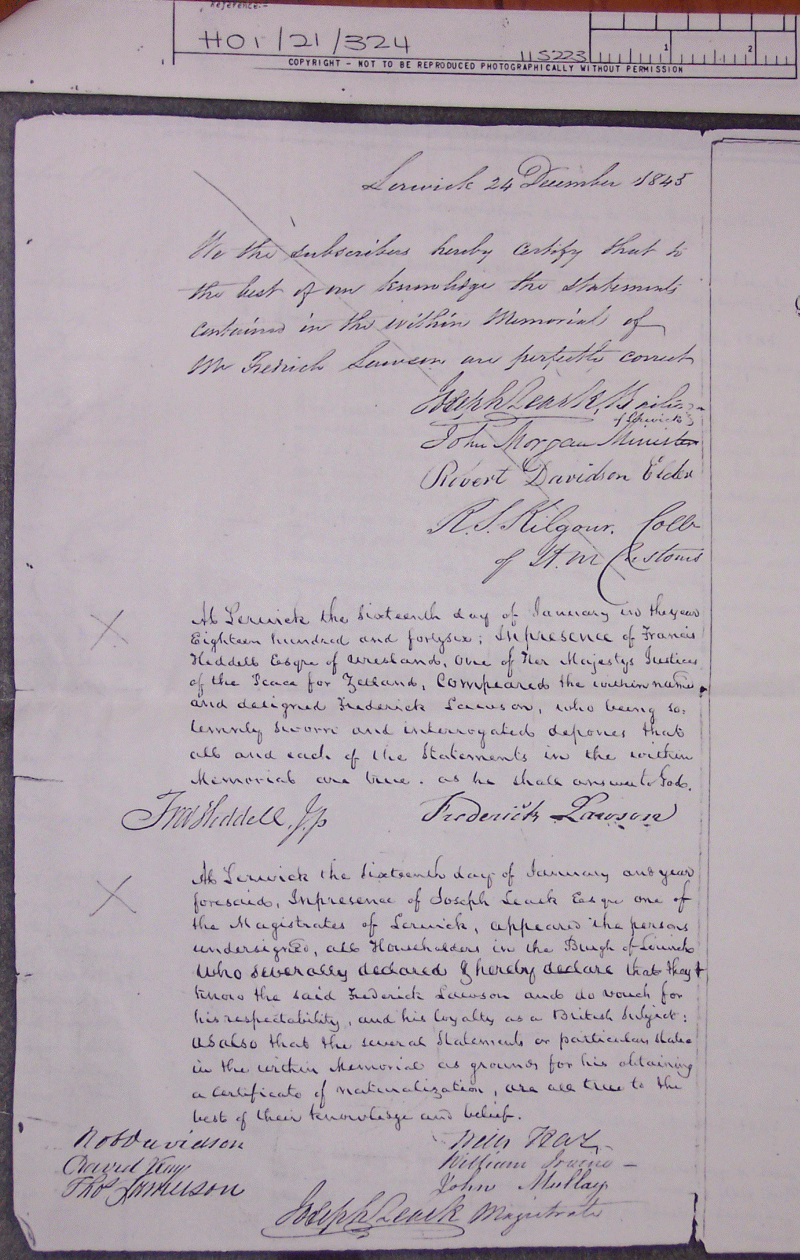 Reference:-
HO1/21/324
115223
1 2
COPYRIGHT - NOT TO BE REPRODUCED PHOTOGRAPHICALLY WITHOUT PERMISSION
Lerwick 24 December 1845
We the subscribers hereby certify that to
the best of our knowledge the statements
contained in the within Memorial of
Mr Fredrick Lawson are perfectly correct
Joseph Leask, Bailie
of Lerwick
John Morgan Minister
Robert Davidson Elder
R. S. Kilgour. Collr
of H.M Customs
At Lerwick the sixteenth day of January in the year
Eighteen hundred and fortysix; In presence of Francis
Heddell Esqre of Uresland, One of Her Majestys Justices
of the Peace for Zetland, Compeared the within named
and designed Frederick Lawson, who being so=
lemnly sworn and interrogated depones that
all and each of the Statements in the within
Memorial are true. as he shall answer to God.
Fra Heddell, Jp
Frederick Lawson
At Lerwick the Sixteenth day of January and year
foresaid, In presence of Joseph Leask Esqre one of
the Magistrates of Lerwick, appeared the persons
undersigned, all Householders in the Burgh of Lerwick
who severally declared & hereby declare that they
know the said Frederick Lawson and do vouch for
his respectability, and his loyalty as a British Subject:
as also that the several Statements or particulars stated
in the within Memorial as grounds for his obtaining
a certificate of naturalization, are all true to the
best of their knowledge and belief.
Rob Davidson
David
Thos Jamieson
William Irvine
John Mullay
Joseph Leask Magistrate